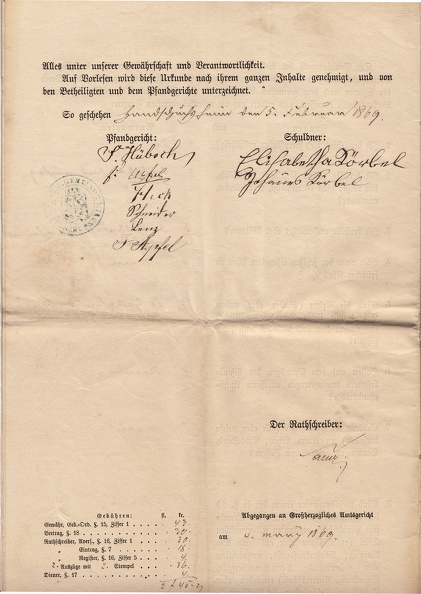 Alles unter unserer Gewährschaft und Verantwortlichkeit.
Auf Vorlesen wird diese Urkunde nach ihrem ganzen Inhalte genehmigt, und von
den Betheiligten und dem Pfandgerichte unterzeichnet.
So geschehen Handschuchsheim den 5. Februar 1869.
Pfandgericht:
Schuldner:
Hübsch
Elisabetha Körbel
Apfel
Johannes Körbel
Heck
Schneider
Lenz
Apfel
Der Rathschreiber:
Gebühren: fl. kr.
Gewähr, Geb.-Ord. § 15, Ziffer 1 . . . 43
Vertrag, § 18 . . . 30
Rathschreiber, Avers. § 16, Ziffer 1 . . . 30
" Eintrag, § 7 . . . 18
" Register, § 16, Ziffer 5 . . . 4
2 Auszüge mit 2 Stempel . . . 36
Diener, § 17 . . . 4
Abgegangen an Großherzogliches Amtsgericht
am März 1869.